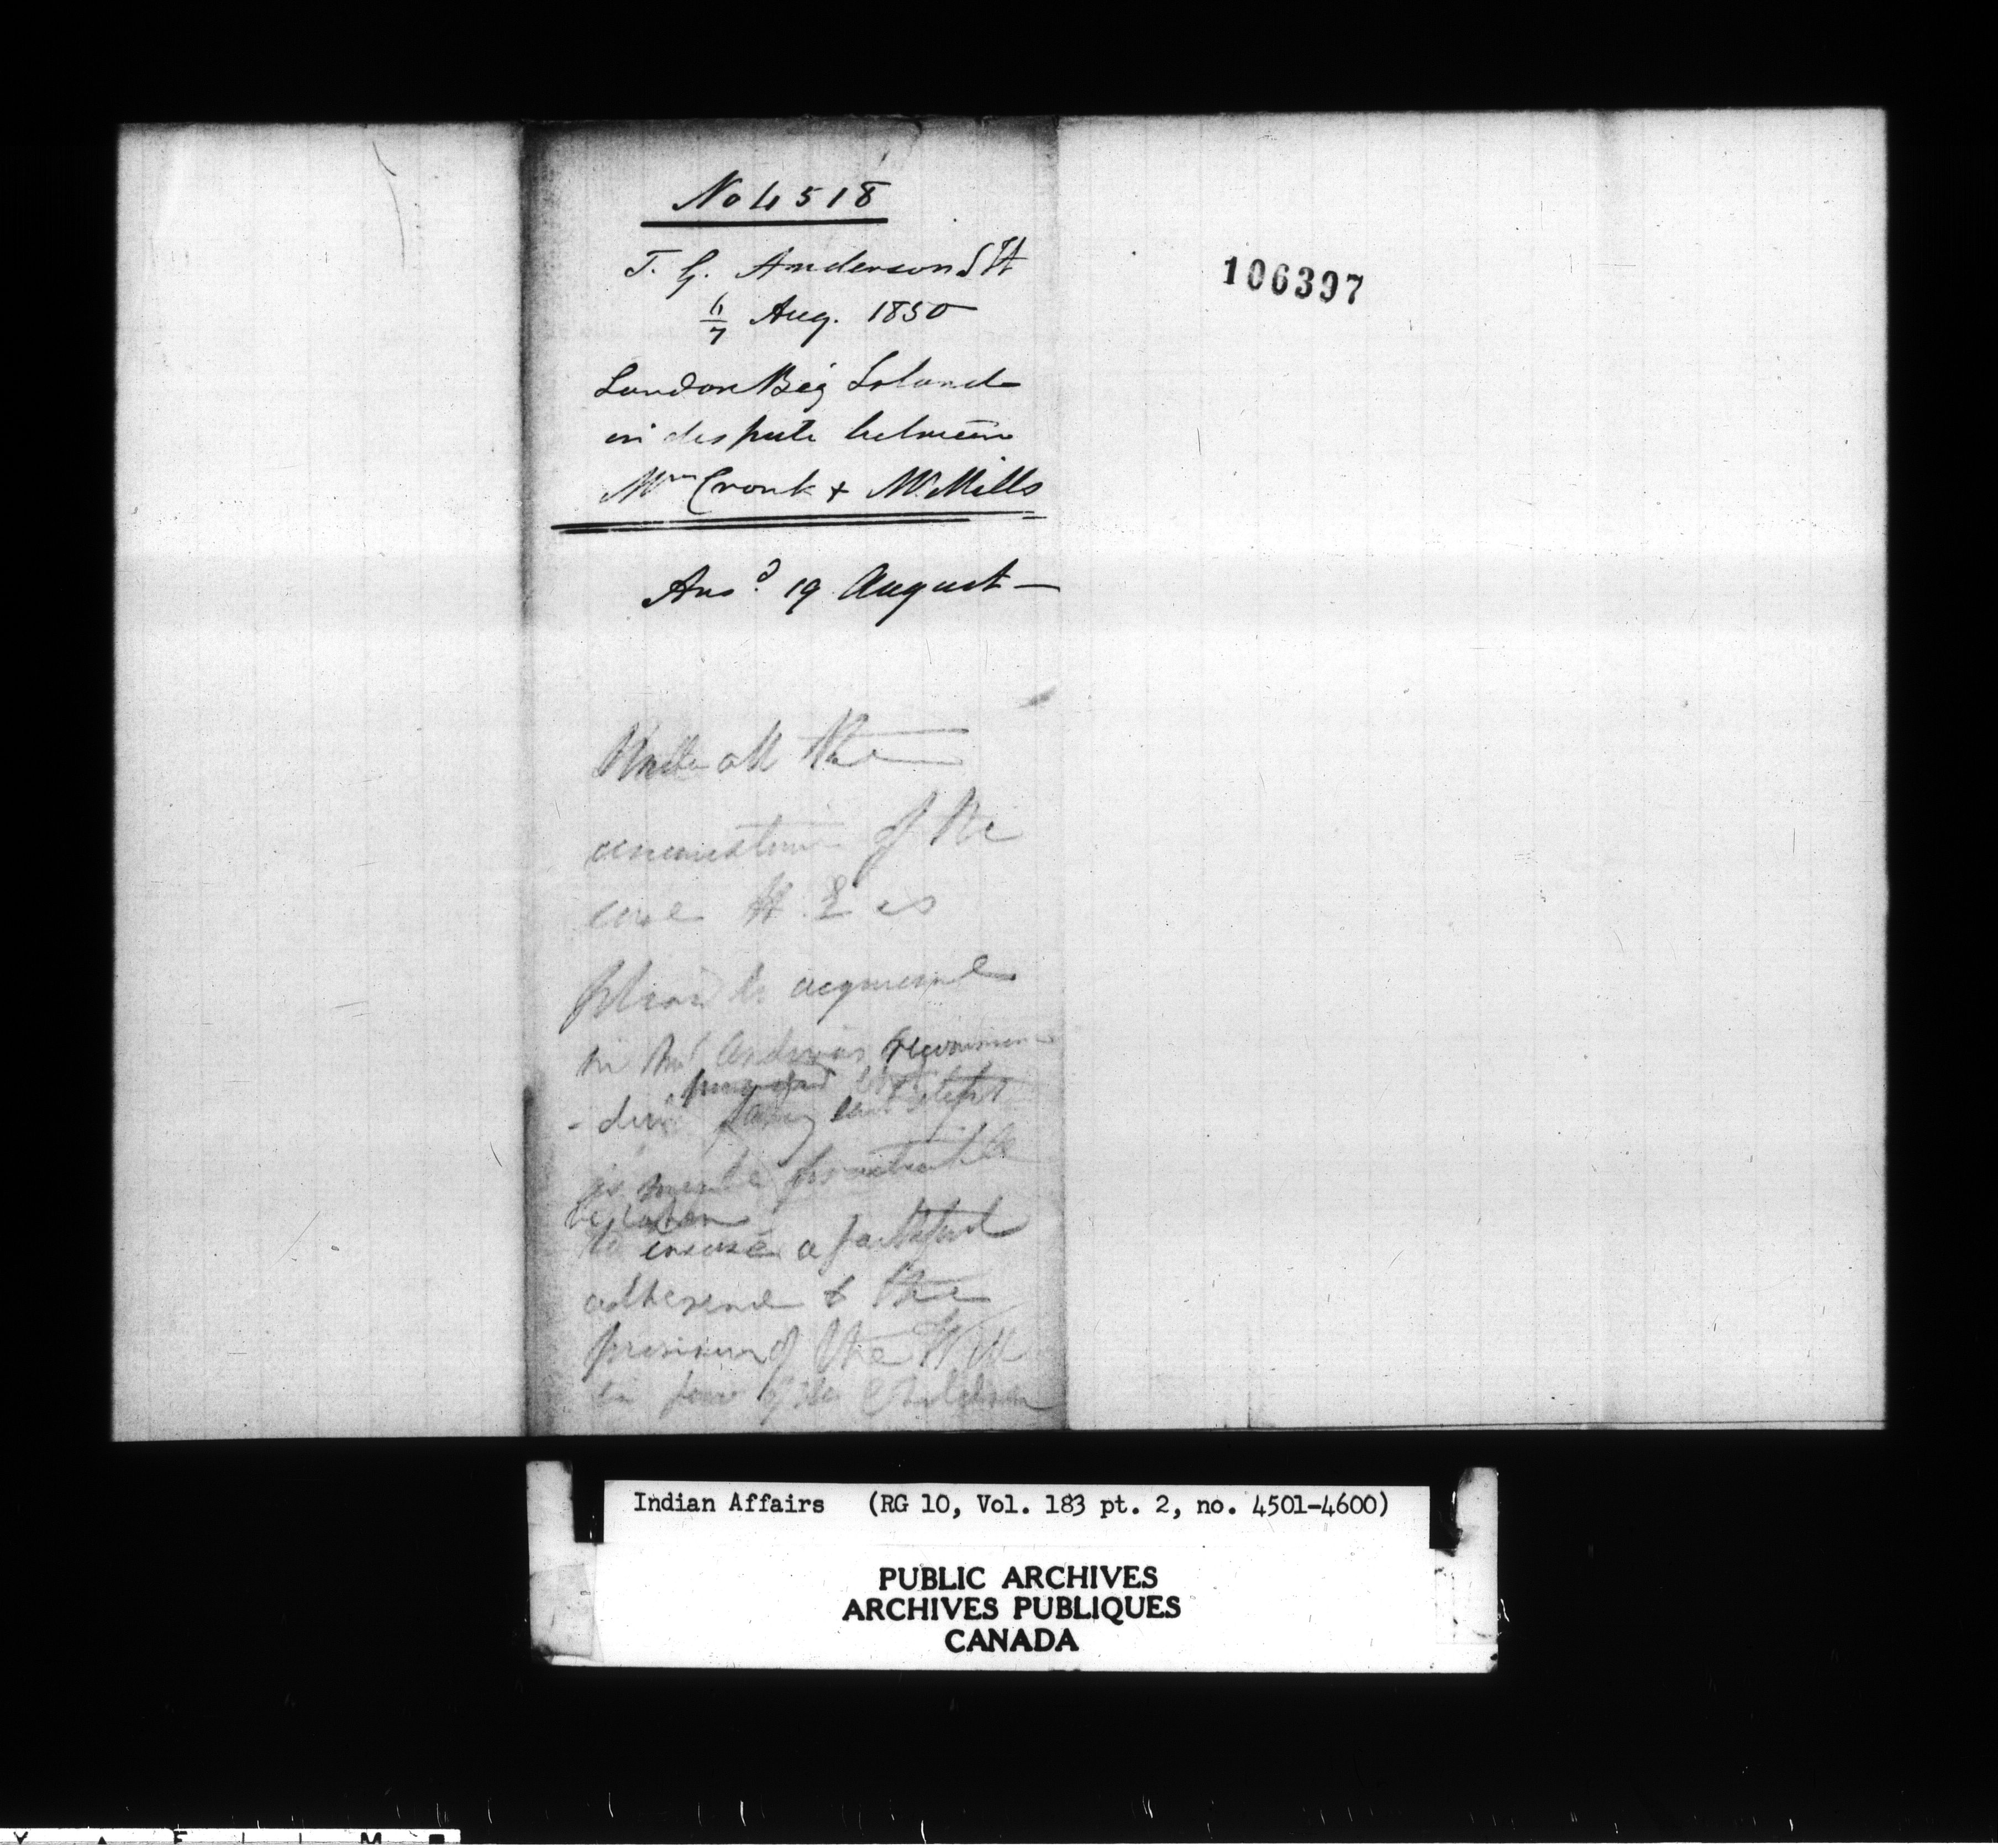 No 4518
T. G. Anderson S H
6/7 Aug. 1850
Land on Big Island
in dispute between
Wm Cronk & Mr Mills
Ansd. 19 August —
106397
Under all the
circumstances of the
case H. E is
pleased to acquiesce
in Mr Anderson's recommen
- dation
steps
practicable
be taken
to ensure a faithful
adherence to the
provision of the Will
in favor of the Children
Indian Affairs (RG 10, Vol. 183 pt. 2, no. 4501-4600)
PUBLIC ARCHIVES
ARCHIVES PUBLIQUES
CANADA